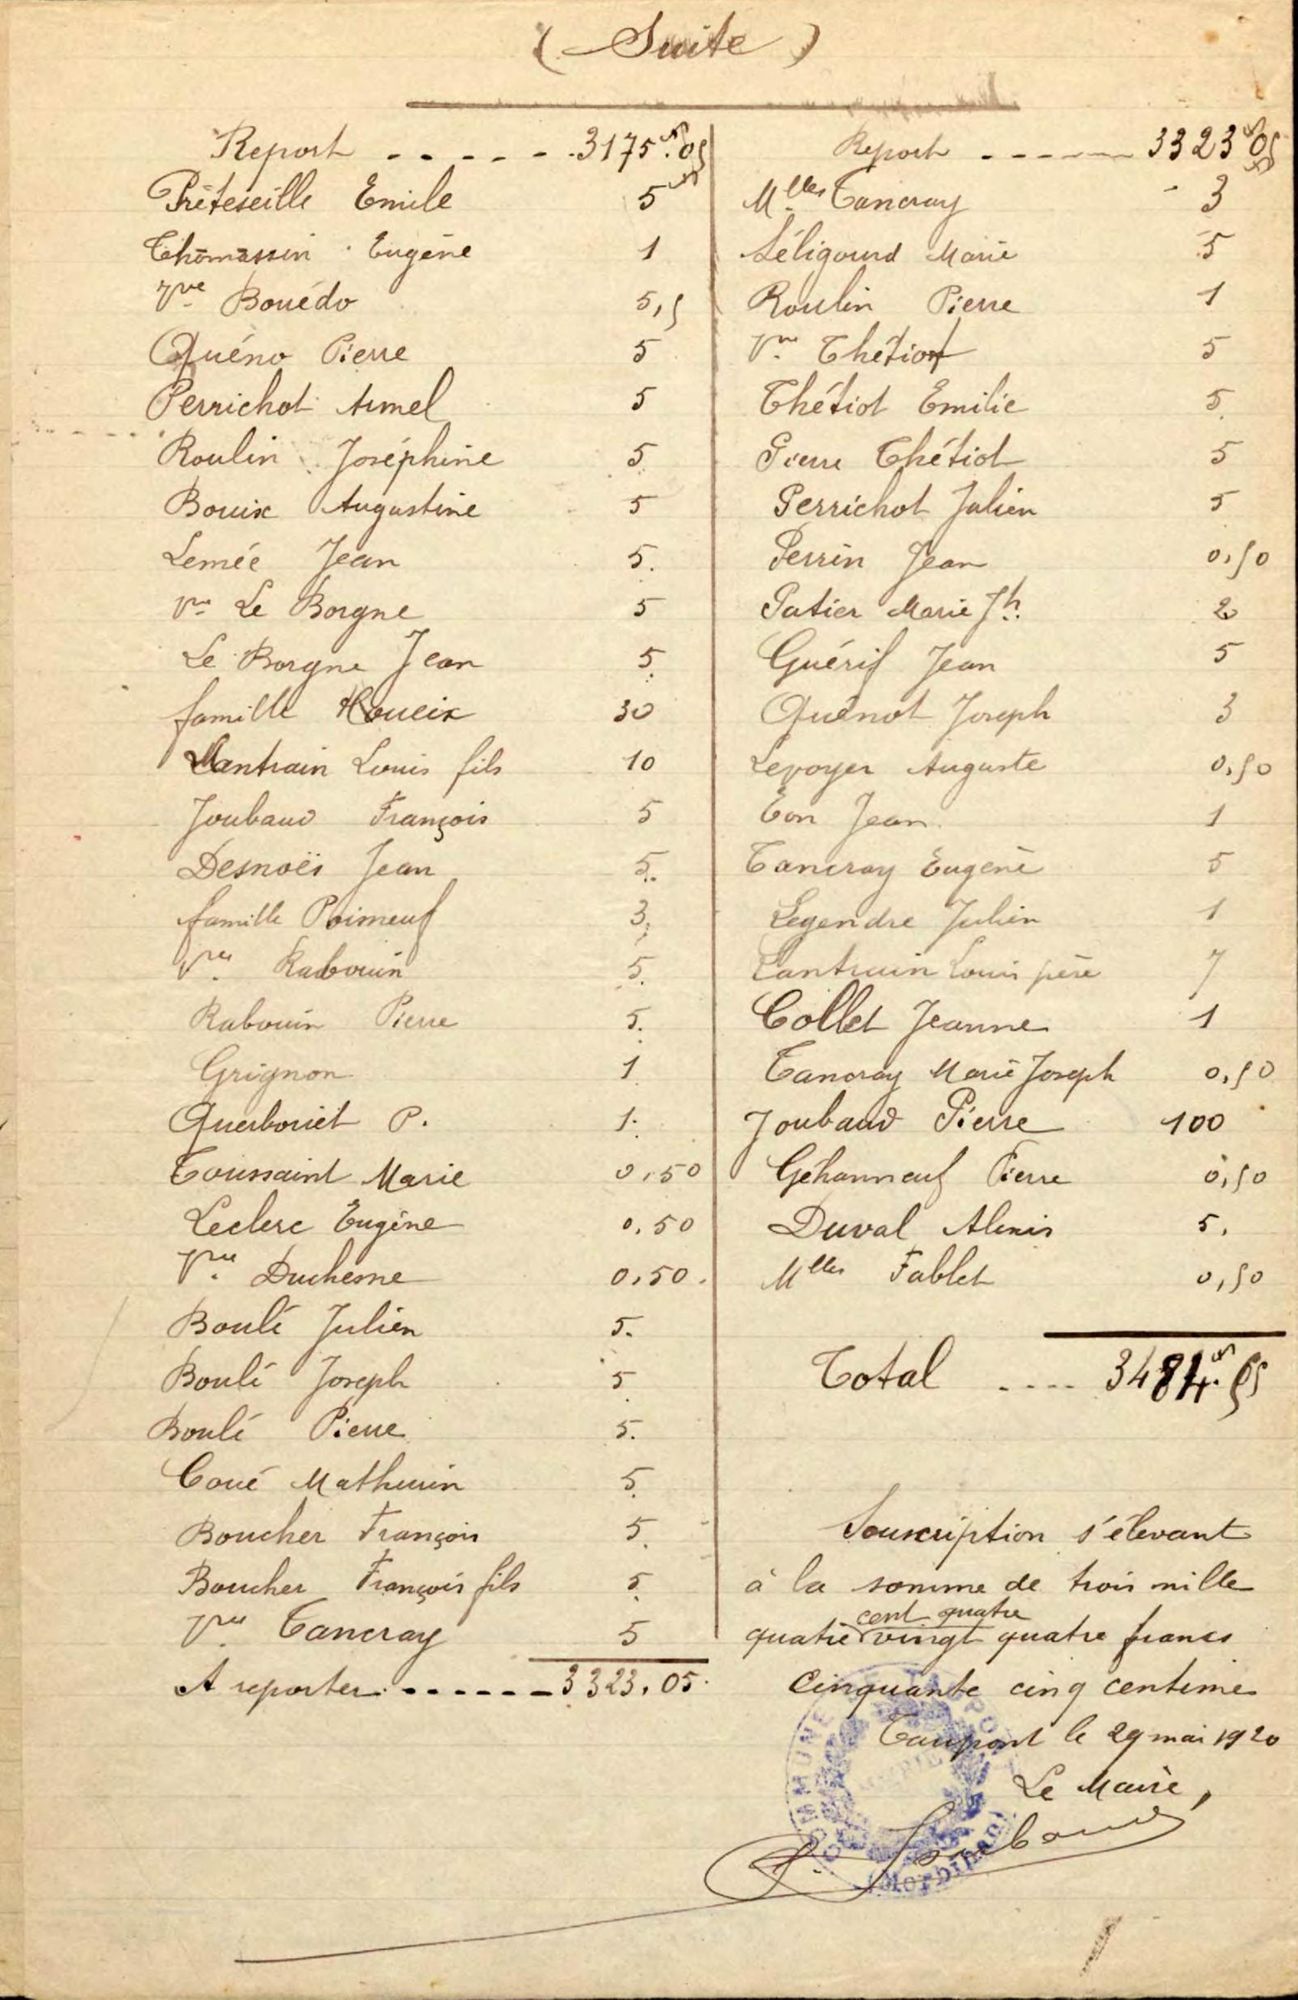 ( Suite )
Report ------ 3175f.05
Préteseille Emile 5
Thomassin Eugène 1
Vve Bouédo 5,5
Quéno Pierre 5
Perrichot Armel 5
Roulin Joséphine 5
Bouix Augustine 5
Lemée Jean 5.
Vve Le Borgne 5
Le Borgne Jean 5.
famille Houeix 30
Lantrain Louis fils 10
Joubaud François 5
Desnoës Jean 5.
famille Poimeuf 3,
Vve Rabouin 5.
Rabouin Pierre 5.
Grignon 1
Querboriet P. 1.
Toussaint Marie 0,50
Leclerc Eugène 0,50
Vve Duchesne 0,50.
Boulé Julien 5.
Boulé Joseph 5
Boulé Pierre 5.
Coué Mathurin 5.
Boucher François 5.
Boucher François fils 5.
Vve Tancray 5
A reporter ------ 3323.05.
Report ------ 3323f05
Mlles Tancray 3
Séligourd Marie 5
Roulin Pierre 1
Vve Thétiot 5
Thétiot Emilie 5
Pierre Thétiot 5
Perrichot Julien 5
Perrin Jean 0,50
Patier Marie Jh. 2
Guérif Jean 5
Quénot Joseph 3
Levoyer Auguste 0,50
Eon Jean 1
Tancray Eugène 5
Legendre Julien 1
Lantrain Louis père 7
Collet Jeanne 1
Tancray Marie Joseph 0,50
Joubaud Pierre 100
Géhanneuf Pierre 0,50
Duval Alexis 5.
Mlles Fablet 0,50
Total ---- 3484f.55
Souscription s'élevant
à la somme de trois mille
cent quatre
quatre vingt quatre francs
cinquante cinq centimes
Taupont le 29 mai 1920
Le Maire,
P. Joubaud
COMMUNE DE TAUPONT
MAIRIE
(Morbihan)